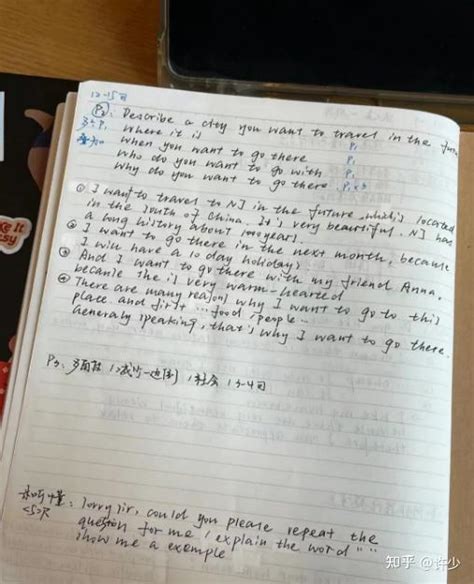 12-15句
P2: Describe a city you want to travel in the
where it is P1
when you want to go there P1
who do you want to go with P1
why do you want to go there P1 x3
① I want to travel to NJ in the future, which is locarted
in the south of China. It's very beautiful. NJ has
a long history about 1000 years.
② I want to go there in the next month, because
I will have a 10 day holidays
③ And I want to go there with my friend Anna,
becanle the is very warm-hearted
④ There are many reasons why I want to go to this
place. and first ... food, people...
Generaly speaking, that's why I want to go there.
P3: 多面拉 社会 3-4句
sorry sir, could you please repeat the
question for me / explain the word " "
show me a exemple
Make It
知乎 @许少